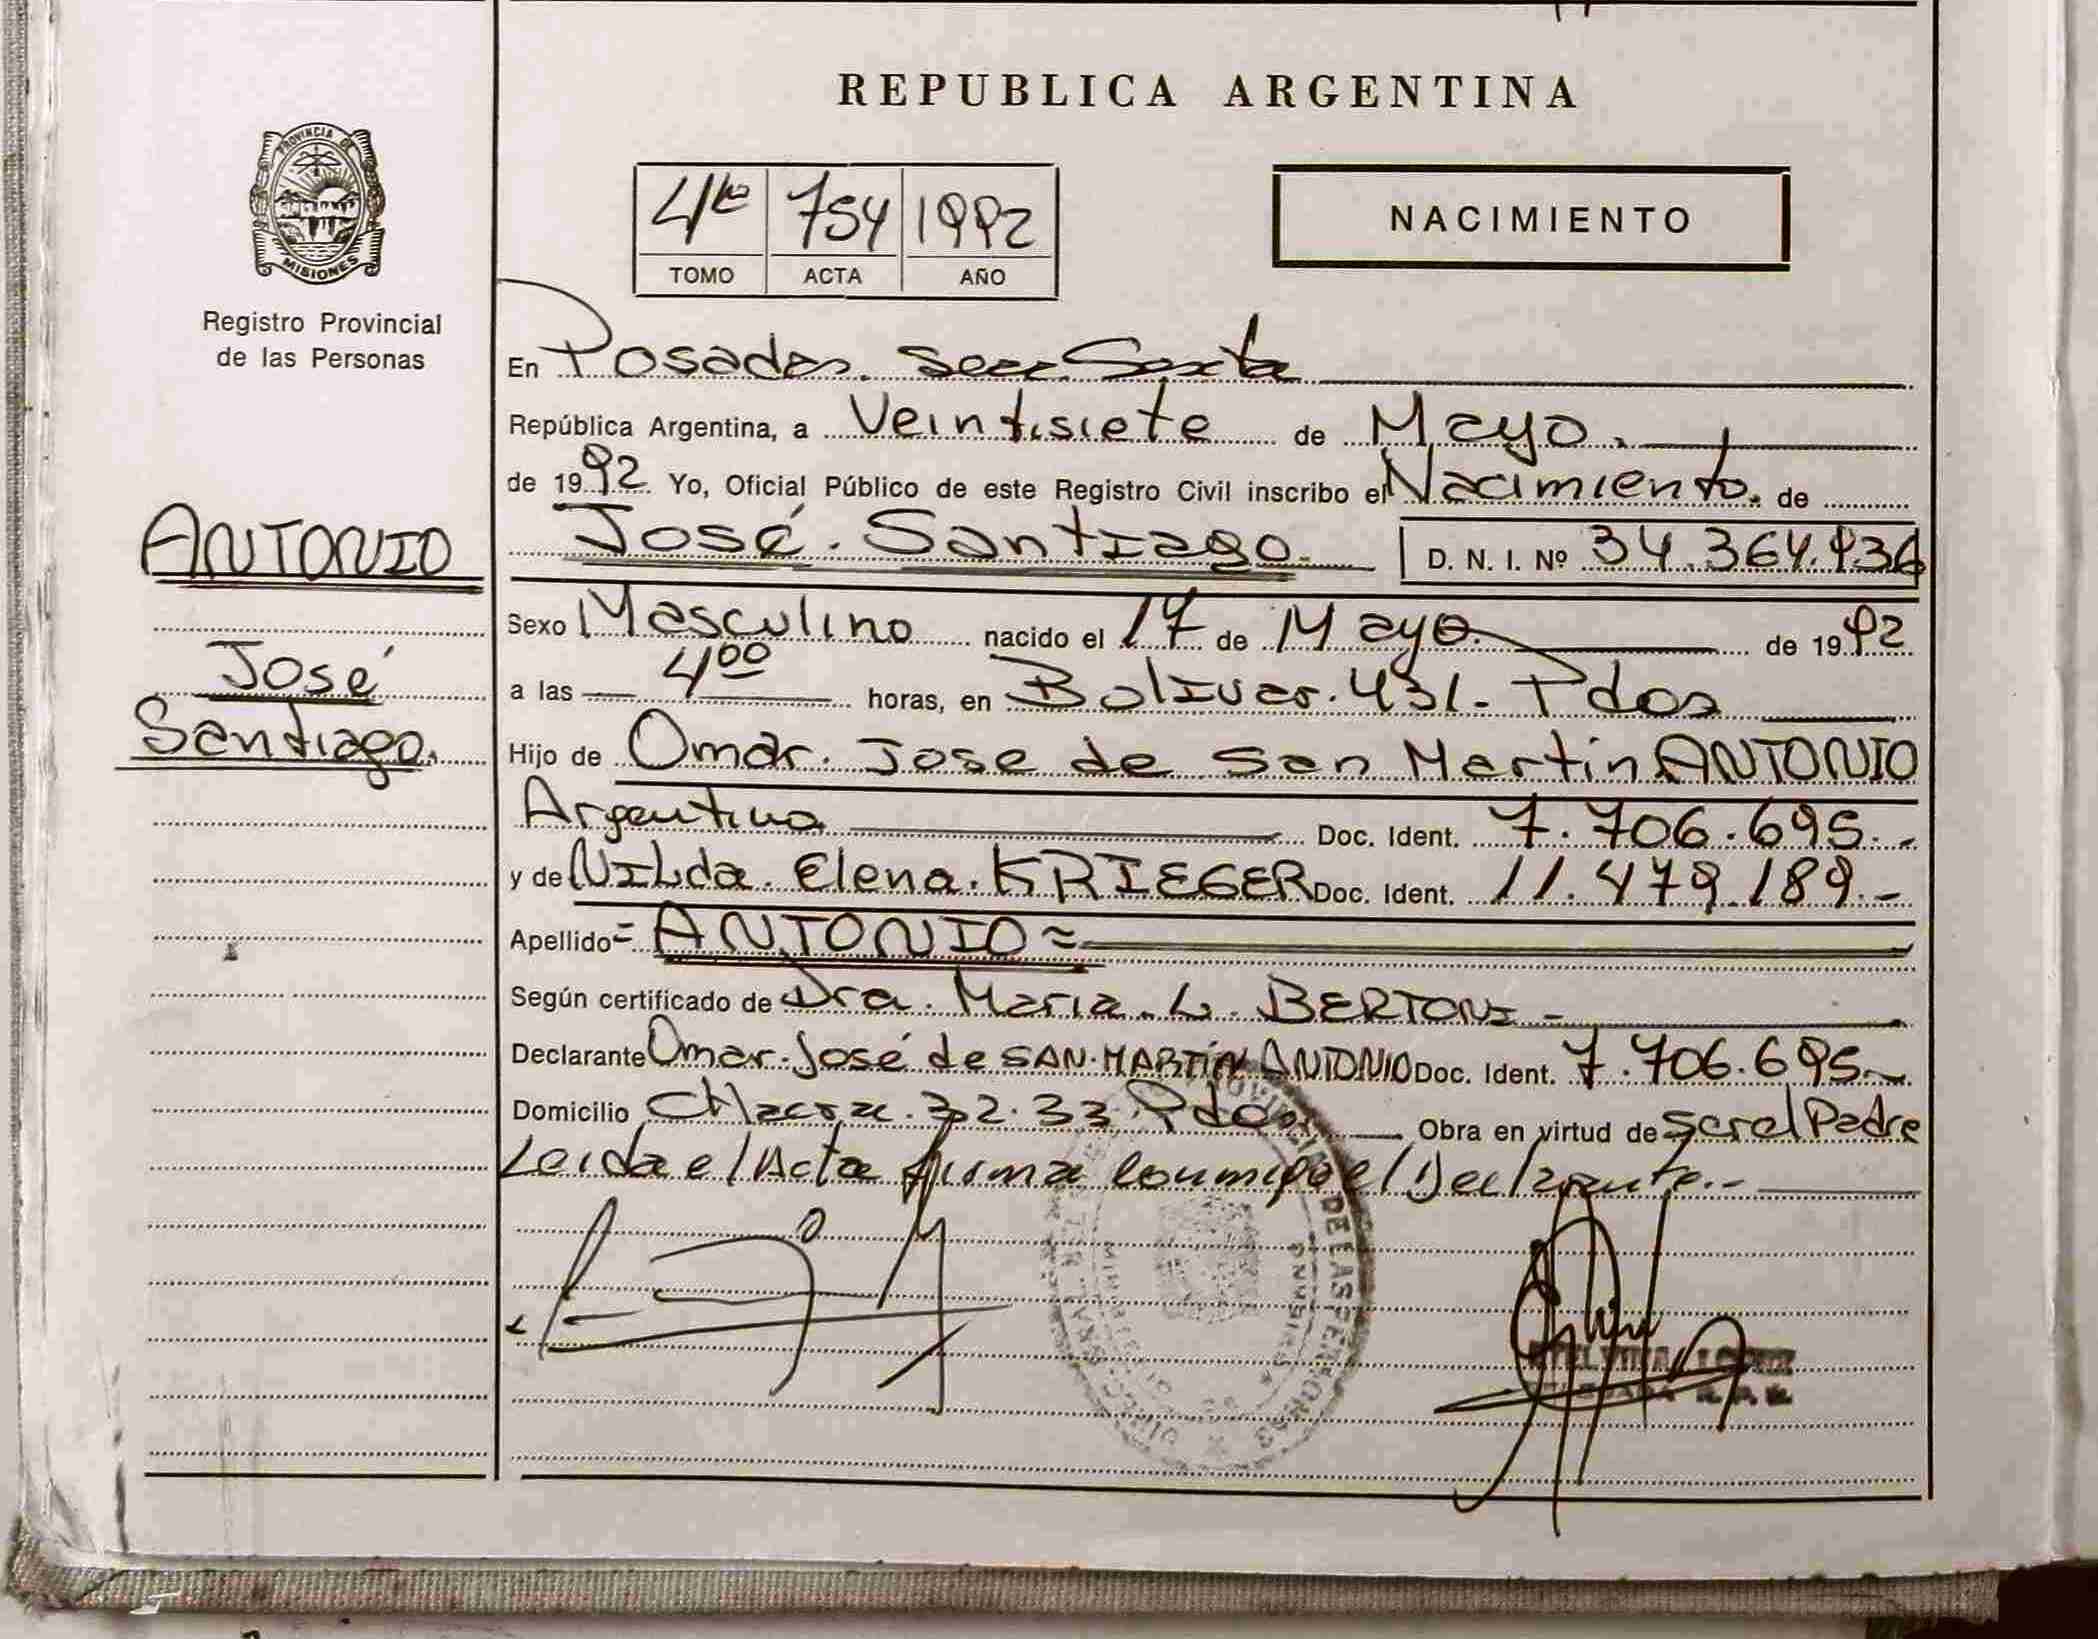 REPUBLICA ARGENTINA
PROVINCIA DE
MISIONES
Registro Provincial
de las Personas
4to 754 1992
TOMO ACTA AÑO
NACIMIENTO
En Posadas. Secc Sexta
República Argentina, a Veintisiete de Mayo.
de 1992 Yo, Oficial Público de este Registro Civil inscribo el Nacimiento. de
José. Santiago. D. N. I. Nº 34.364.936
ANTONIO
José
Santiago.
Sexo Masculino nacido el 17 de Mayo. de 1992
a las 4 00 horas, en Bolivar. 431. Pdas
Hijo de Omar. Jose de San Martin ANTONIO
Argentino Doc. Ident. 7.706.695.-
y de NILda. Elena. KRIEGER Doc. Ident. 11.479.189.-
Apellido = ANTONIO =
Según certificado de Dra. Maria. L. BERTONI -
Declarante Omar. José de SAN. MARTíN ANTONIO Doc. Ident. 7.706.695.-
Domicilio CHacra. 32.33. Pdas Obra en virtud de ser el Padre
Leida el Acta firma conmigo el Declarante.-
DE LAS PERSONAS